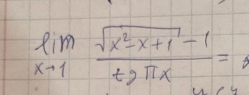 lim x→1 (√(x²-x+1) - 1) / (tg πx) =